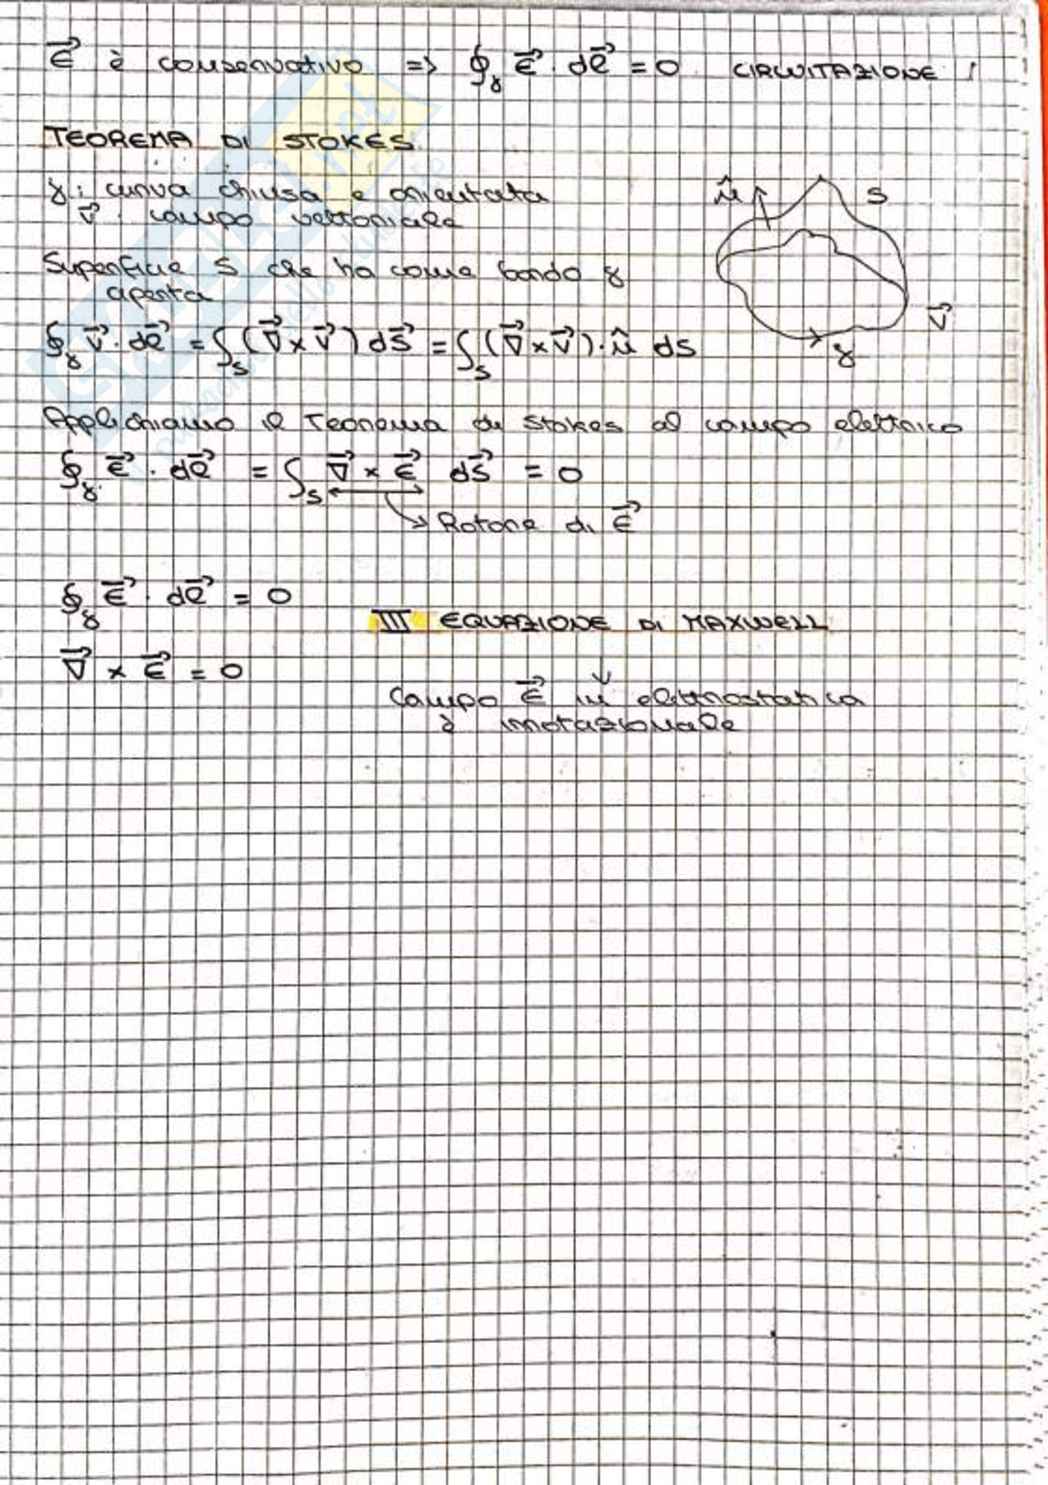 E⃗ è conservativo => ∮γ E⃗ · dl⃗ = 0 CIRCUITAZIONE
TEOREMA DI STOKES
γ: curva chiusa e orientata
v⃗: campo vettoriale
Superficie S che ha come bordo γ
aperta
∮γ v⃗ · dl⃗ = ∫S (∇⃗ × v⃗) dS⃗ = ∫S (∇⃗ × v⃗) · û dS
û S
v⃗
γ
Applichiamo il Teorema di Stokes al campo elettrico
∮γ E⃗ · dl⃗ = ∫S ∇⃗ × E⃗ dS⃗ = 0
Rotore di E⃗
∮γ E⃗ · dl⃗ = 0
III EQUAZIONE DI MAXWELL
∇⃗ × E⃗ = 0
Campo E⃗ in elettrostatica
è irrotazionale